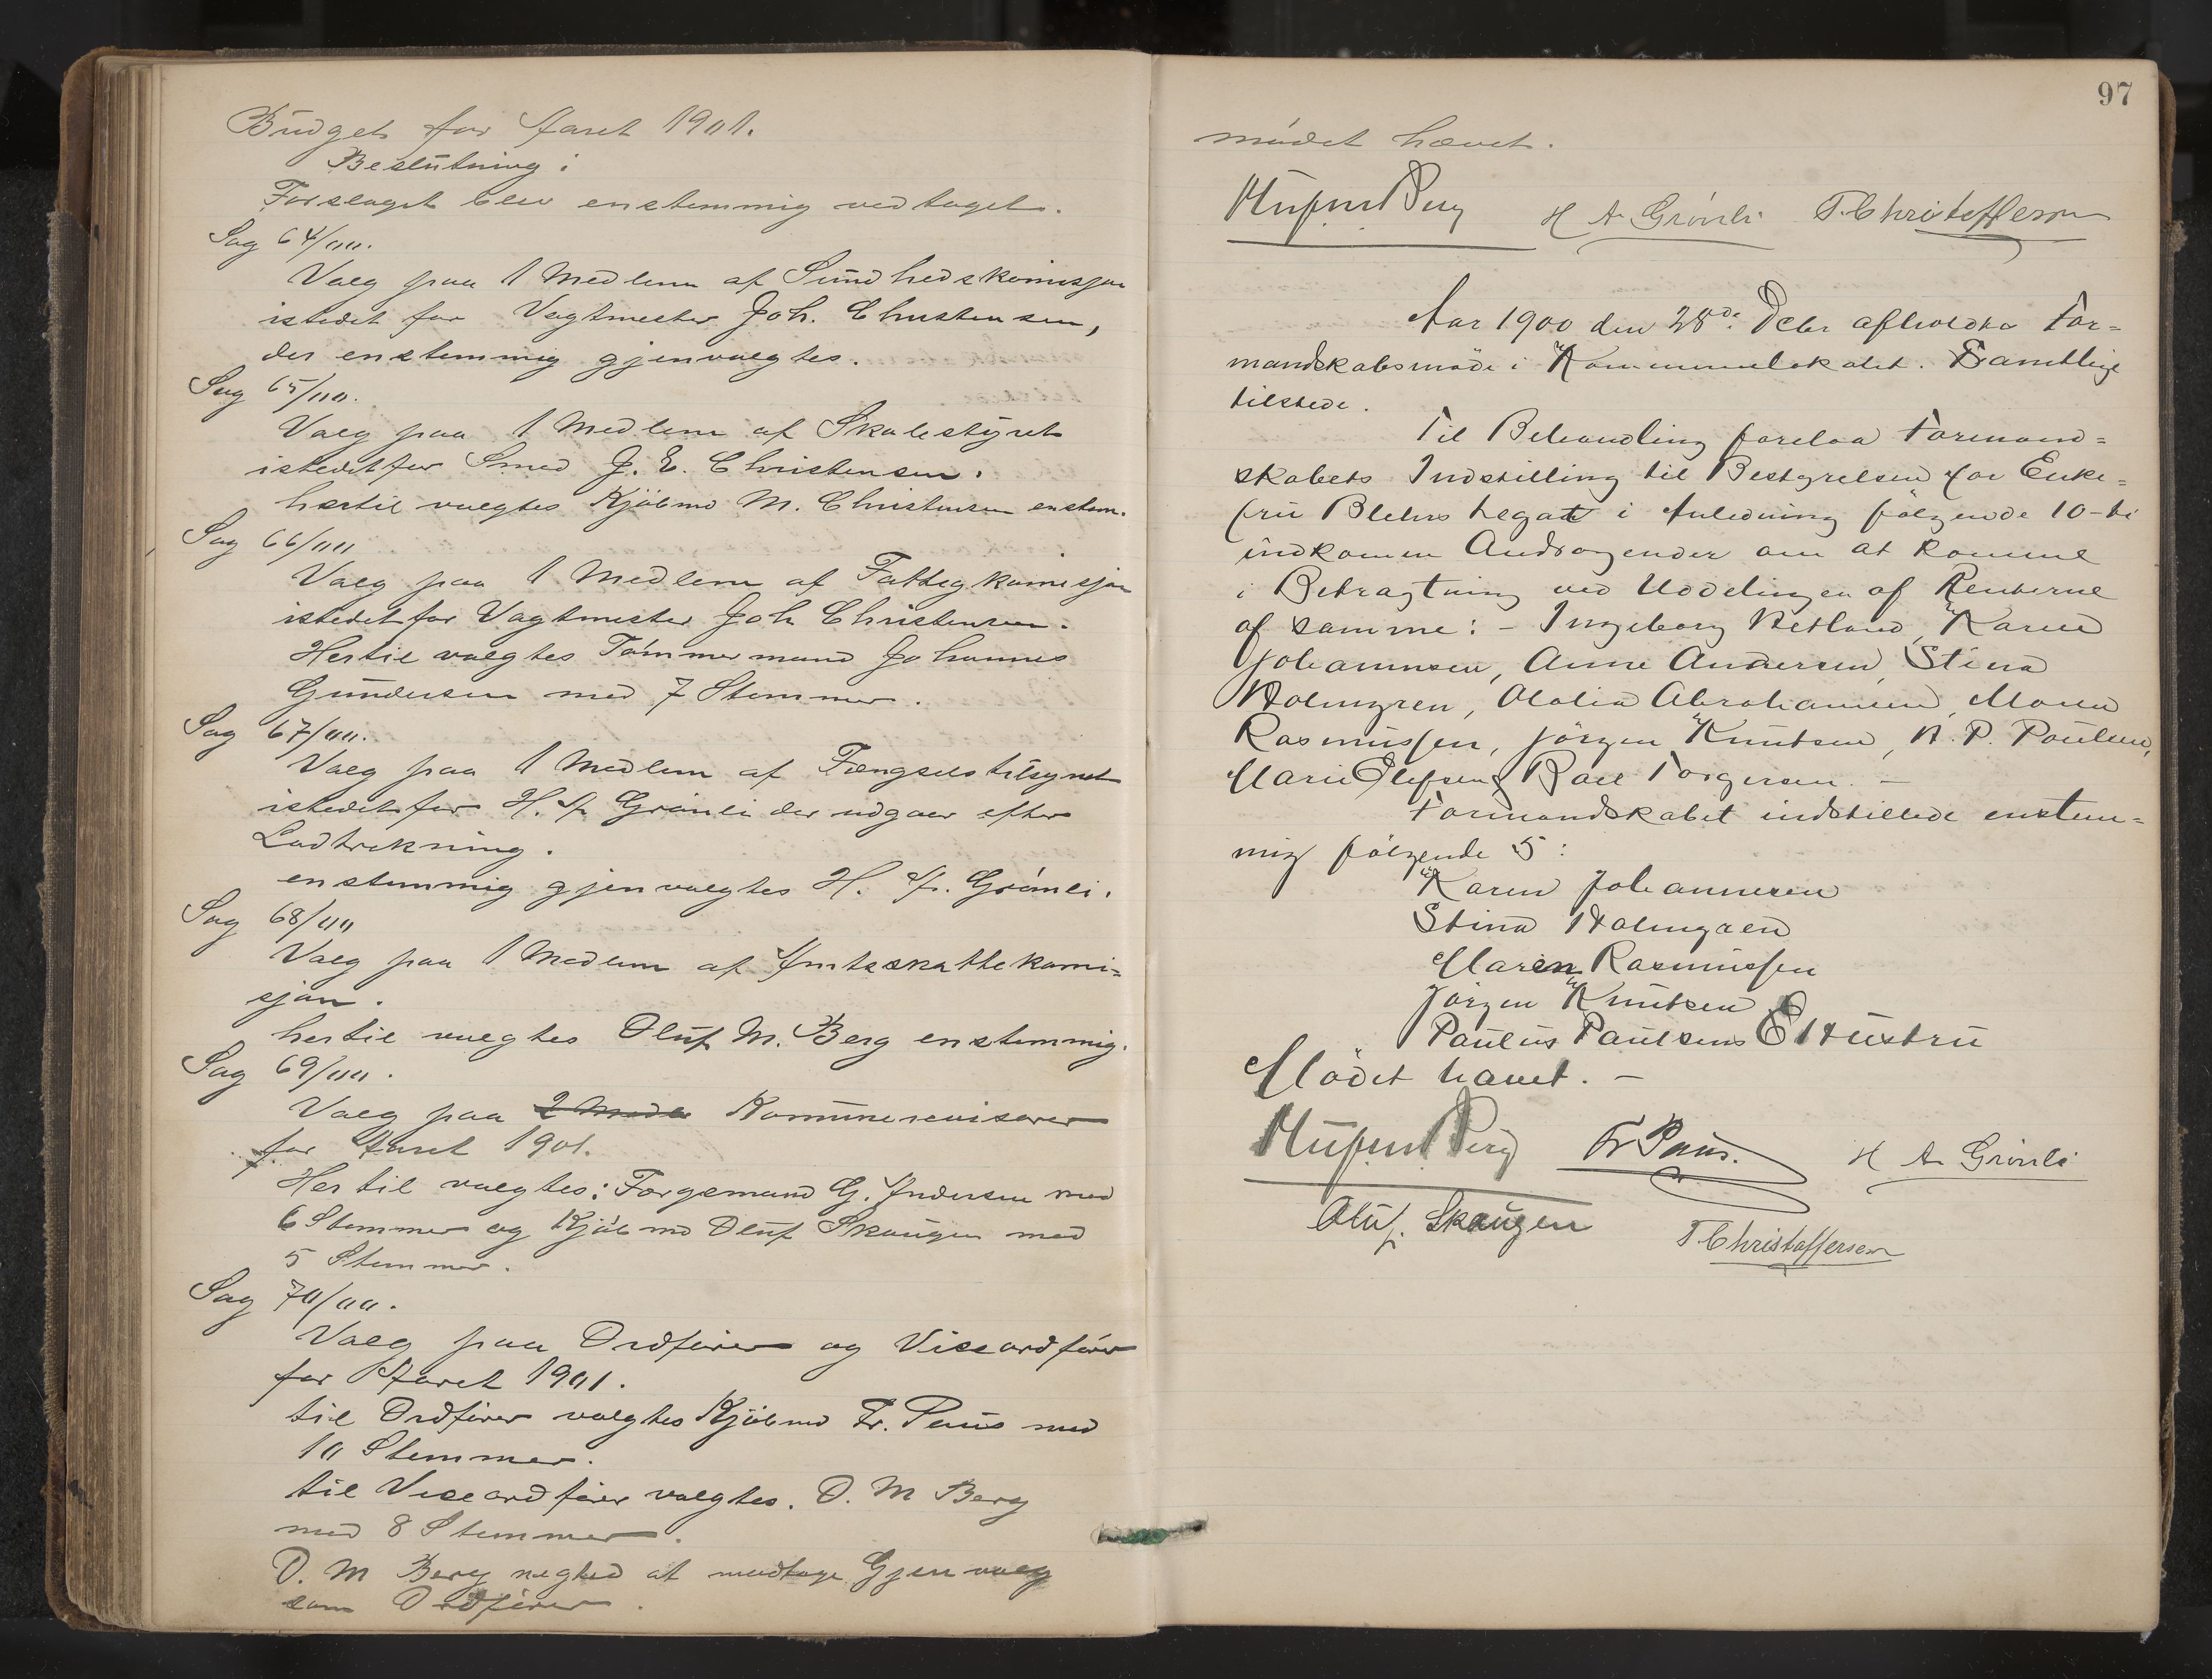 Budget for Aaret 1901.
Beslutning:
Forslaget blev enstemmig vedtaget.
Sag 64/00.
Valg paa 1 Medlem af Sundhedskomisjon
istedet for Vagtmester Joh. Christensen,
der enstemmig gjenvalgtes.
Sag 65/00.
Valg paa 1 Medlem af Skolestyret
istedetfor Smed J. E. Christensen.
hertil valgtes Kjöbmd M. Christensen enstem.
Sag 66/00
Valg paa 1 Medlem af Fattigkomisjon
istedetfor Vagtmester Joh Christensen.
Hertil valgtes Tömmermand Johannes
Gundersen med 7 Stemmer.
Sag 67/00.
Valg paa 1 Medlem af Fængselstilsynet
istedetfor H. A. Grönli der udgaar efter
Lodtrekning.
enstemmig gjenvalgtes H. A. Grönli.
Sag 68/00
Valg paa 1 Medlem af Amtsskattekomi-
sjon.
hertil valgtes Oluf M. Berg enstemmig.
Sag 69/00.
Valg paa 2 Medle Komunerevisorer
for Aaret 1901.
Hertil valgtes: Forgemand G. Andersen med
6 Stemmer og Kjöbmd Oluf Skaugen med
5 Stemmer.
Sag 70/00.
Valg paa Ordförer og Viseordförer
for Aaret 1901.
til Ordförer valgtes Kjöbmd Fr. Paus med
10 Stemmer.
til Viseordförer valgtes. O. M Berg
med 8 Stemmer.
O. M Berg negted at modtage Gjenvalg
som Ordförer.
97
mödet hævet.
Berg H A Grönli T. Christoffersen
Aar 1900 den 28de Debr afholdtes For-
mandskabsmöde i Kommunelokalet. Samtlige
tilstede.
Til Behandling forelaa Formand-
skabets Indstilling til Bestyrelsen for Enke-
fru Blehrs Legat i Anledning fölgende 10-ti
indkomne Andragender om at komme
i Betragtning ved Uddelingen af Renterne
af samme: - Ingeborg Hetland, Karen
Johannesen, Anne Andersen, Stina
Holmgren, Olalia Abrahamsen, Maren
Rasmussen, Jörgen Knutsen, H. P. Paulsen,
Marie Olefsen & Roll Torgersen. -
Formandskabet indstillede enstem-
mig fölgende 5:
Karen Johannesen
Stina Holmgren
Maren Rasmussen
Jörgen Knutsen &
Paulus Paulsens Hustru
Mödet hævet. -
Berg Fr Paus. H A Grönli
Oluf Skaugen T. Christoffersen